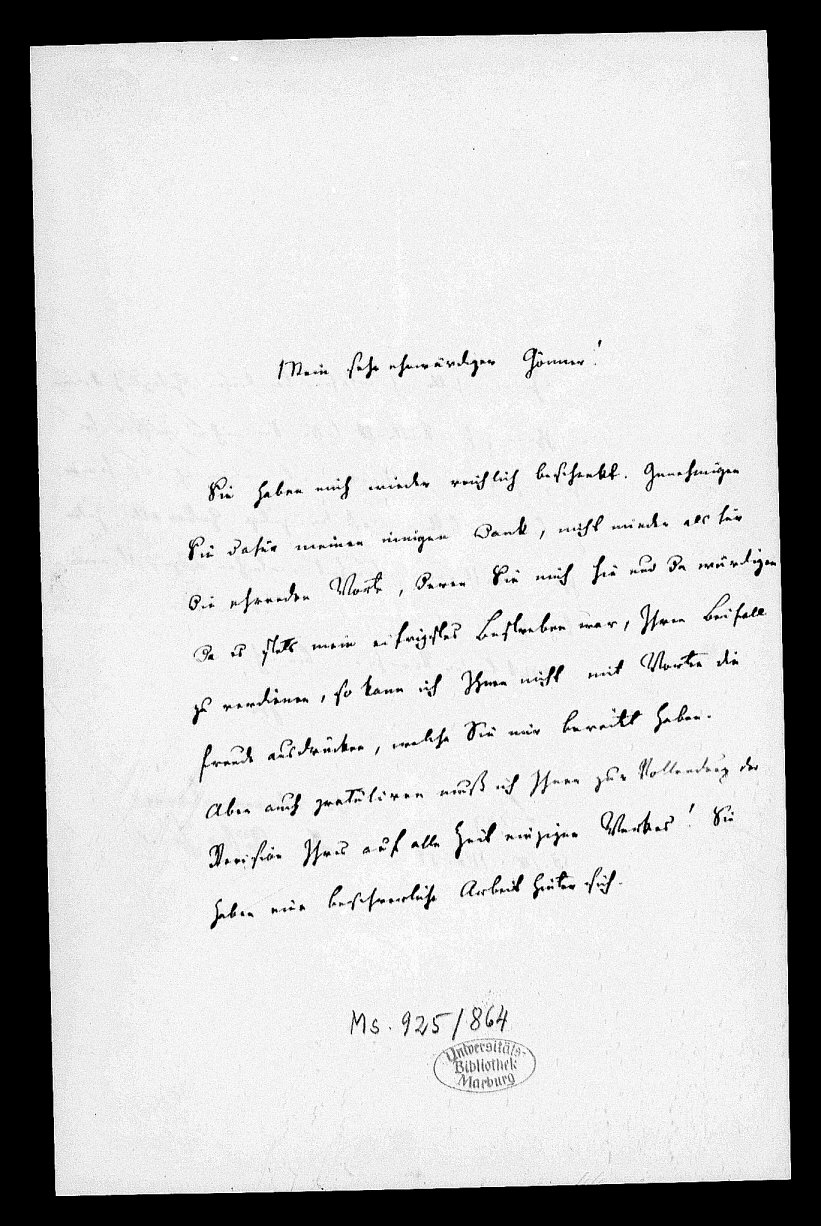 Mein sehr ehrwürdiger Gönner!
Sie haben mich wieder reichlich beschenkt. Genehmigen
Sie dafür meinen innigen Dank, nicht minder als für
die ehrenden Worte, deren Sie mich hie und da würdigen
Da es stets mein eifrigstes Bestreben war, Ihren Beifall
zu verdienen, so kann ich Ihnen nicht mit Worten die
Freude ausdrücken, welche Sie mir bereitet haben.
Aber auch gratuliren muß ich Ihnen zur Vollendung der
Revision Ihres auf alle Zeit einzigen Werkes! Sie
haben eine beschwerliche Arbeit hinter sich.
Ms. 925/864
Universitäts-
Bibliothek
Marburg